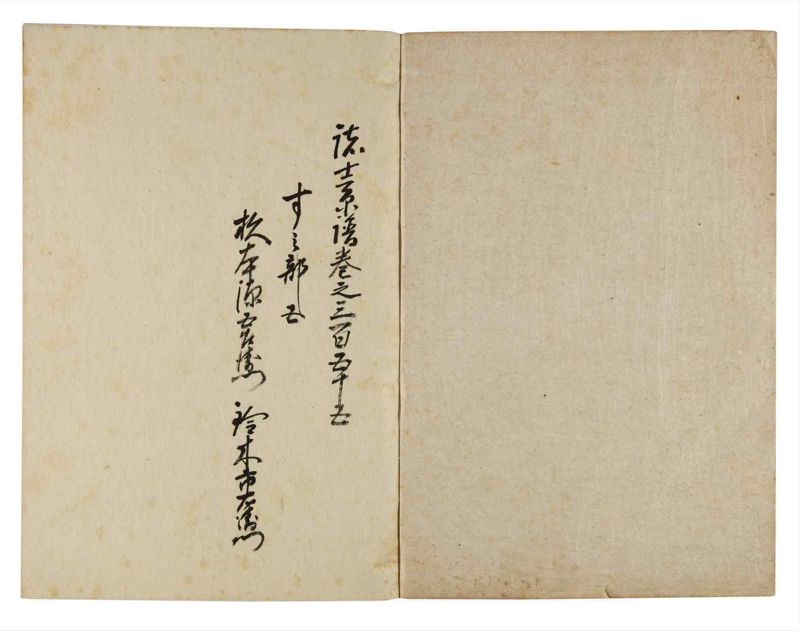 諸士系譜巻之三百五十五
す之部 五
杉本源五右衛門 鈴木市左衛門